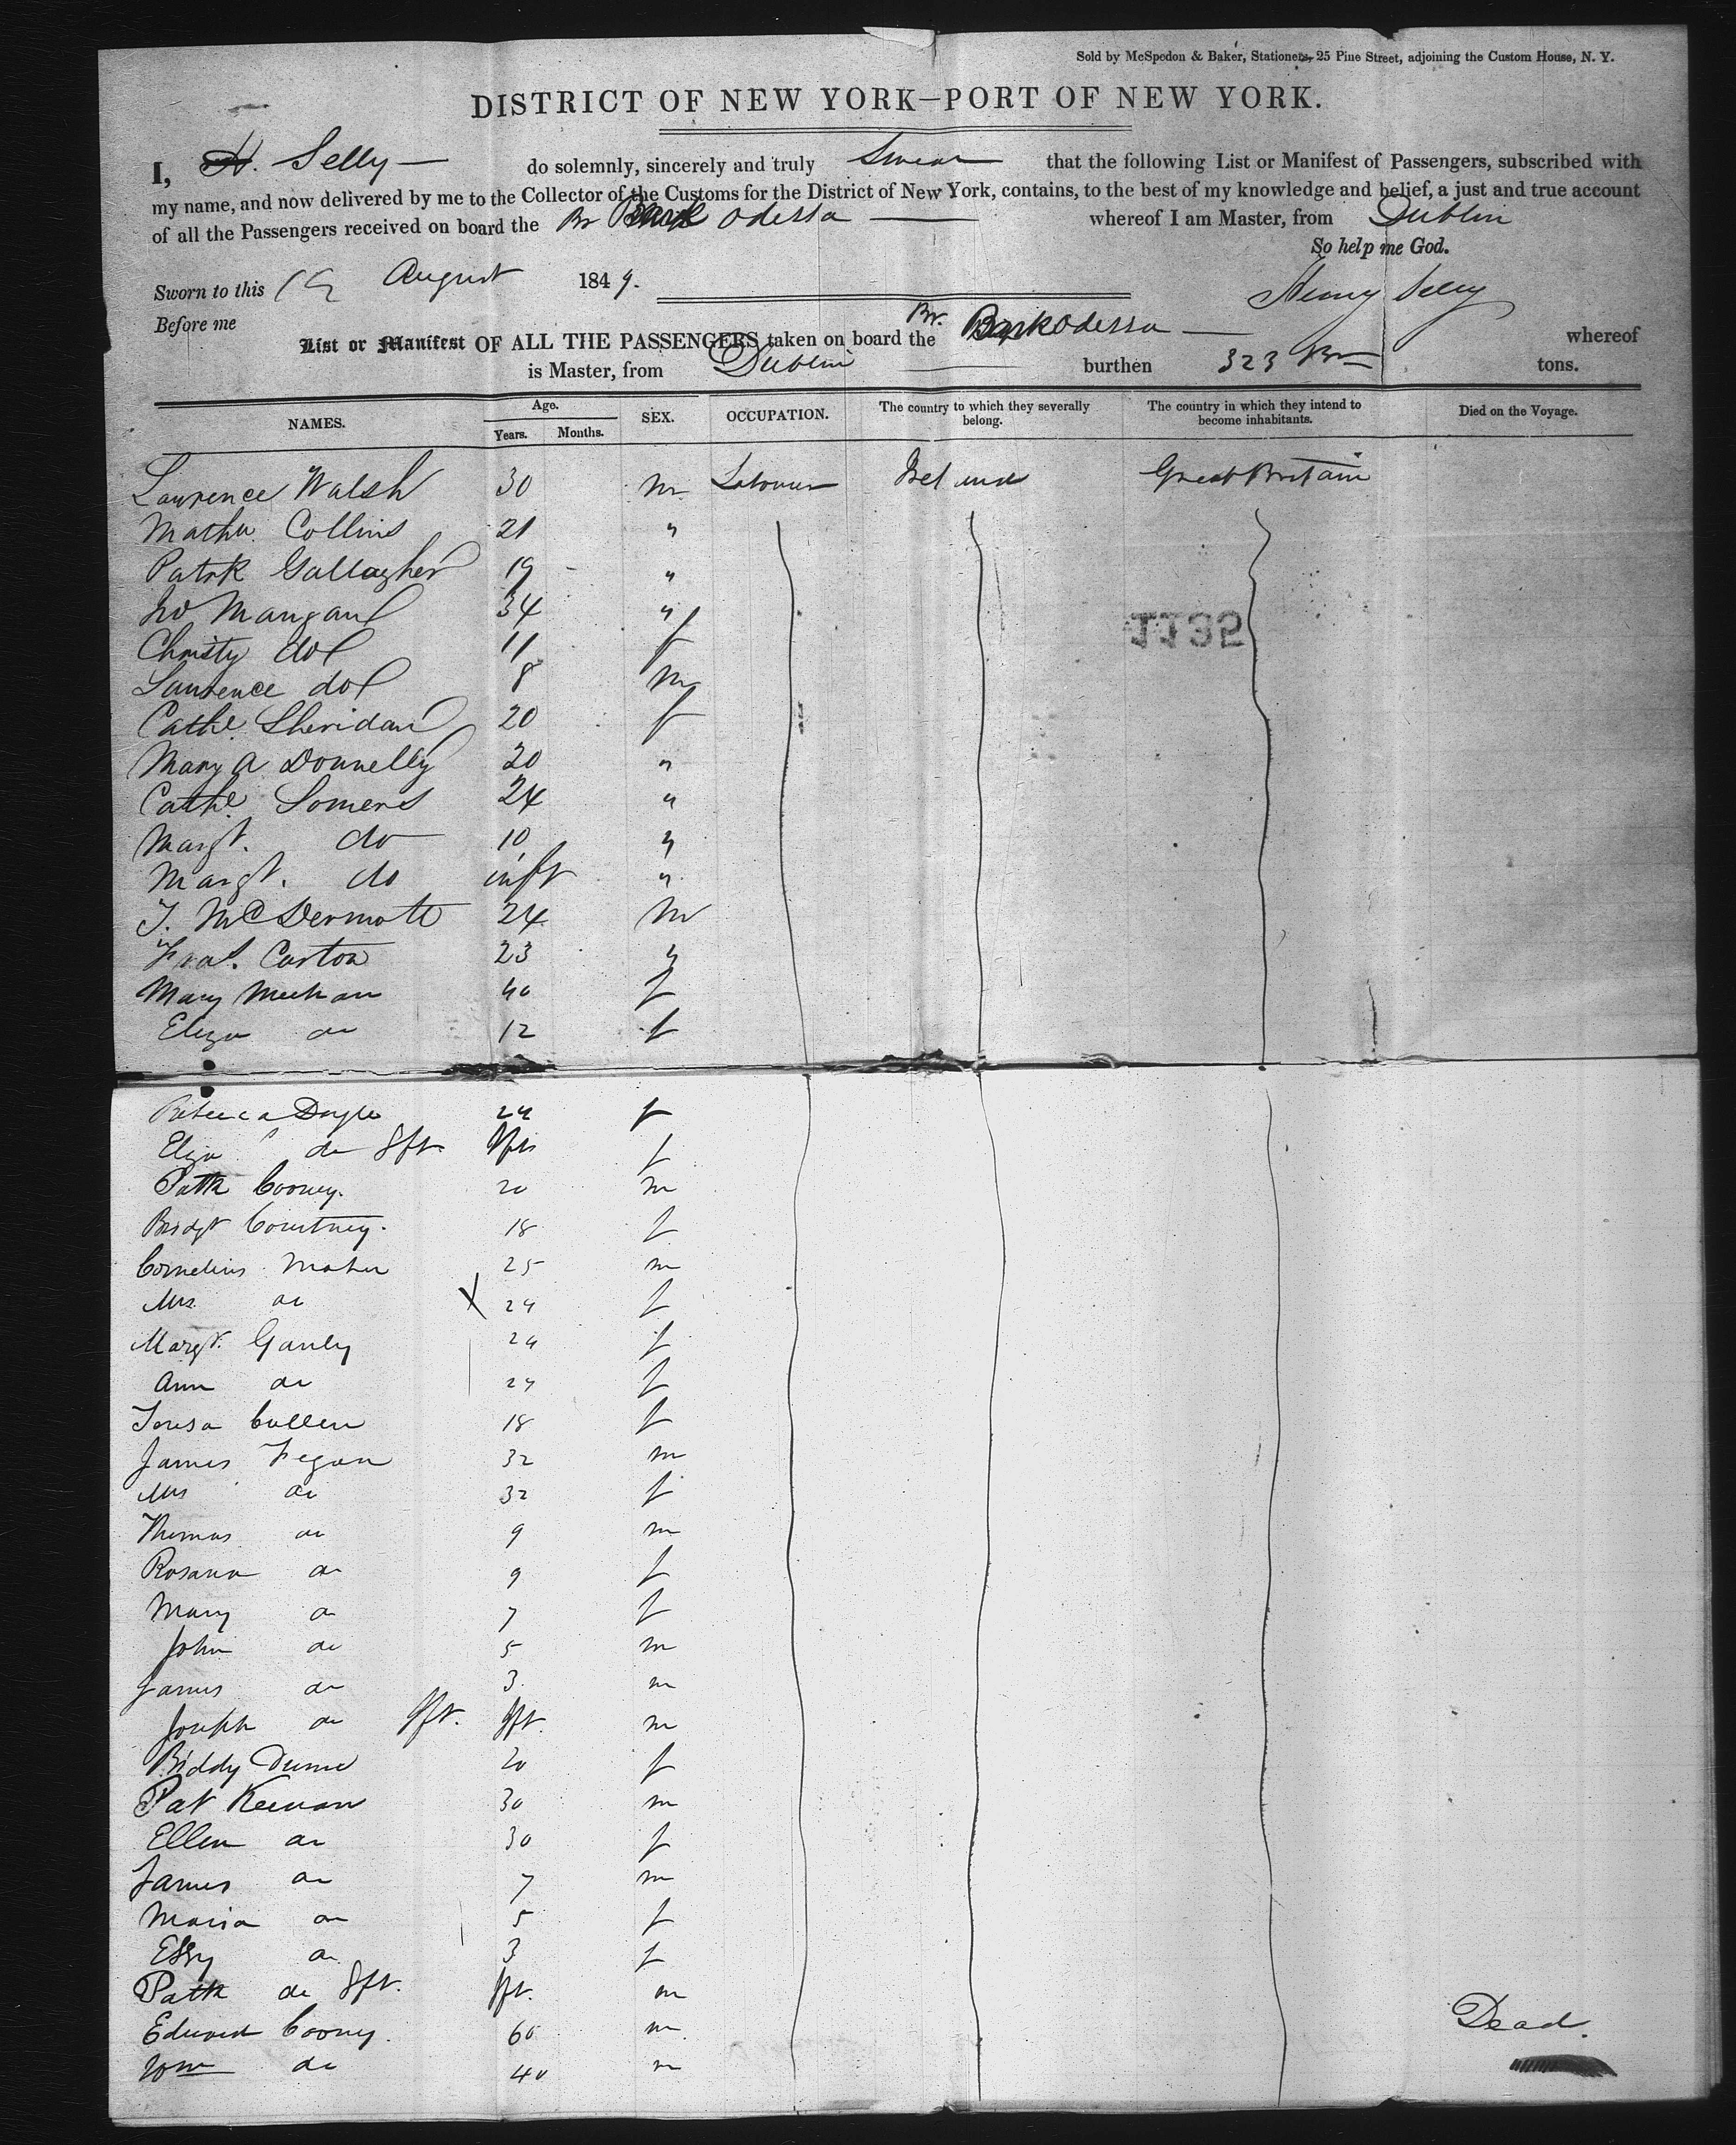 Sold by McSpedon & Baker, Stationers, 25 Pine Street, adjoining the Custom House, N. Y.
DISTRICT OF NEW YORK—PORT OF NEW YORK.
I, H. Selly — do solemnly, sincerely and truly Swear that the following List or Manifest of Passengers, subscribed with
my name, and now delivered by me to the Collector of the Customs for the District of New York, contains, to the best of my knowledge and belief, a just and true account
of all the Passengers received on board the Br Bark Odessa — whereof I am Master, from Dublin
So help me God.
Sworn to this August 1849.
Henry Selly
Before me
List or Manifest OF ALL THE PASSENGERS taken on board the Br. Bark Odessa — whereof
is Master, from Dublin — burthen 323 tons.
NAMES. Age. Years. Months. SEX. OCCUPATION. The country to which they severally belong. The country in which they intend to become inhabitants. Died on the Voyage.
Lawrence Walsh 30 m Labourer Ireland Great Britain
Mathw. Collins 21 "
Patrk Gallagher 19 "
Mangan 34 "
Christy do 11 f
Laurence do 8 m
1135
Cathe. Sheridan 20 f
Mary A Donnelly 20 "
Cathe. Somers 24 "
Margt. do 10 "
Margt. do inft "
T. McDermott 24 m
Fras. Carton 23 "
Mary Meehan 40 f
Eliza do 12 f
Rebecca Doyle 24 f
Eliza do Ift. Ift f
Patk Cooney. 20 m
Bridgt Courtney. 18 f
Cornelius Maher 25 m
Mrs do X 24 f
Margt. Ganly 24 f
Ann do 24 f
Teresa Cullen 18 f
James Fegan 32 m
Mrs do 32 f
Thomas do 9 m
Rosanna do 9 f
Mary do 7 f
John do 5 m
James do 3 m
Joseph do Ift. Ift. m
Biddy Dunne 20 f
Pat Keenan 30 m
Ellen do 30 f
James do 7 m
Maria do 5 f
Essy do 3 f
Patk do Ift. Ift. m
Edward Cooney. 60 m Dead.
Wm do 40 m